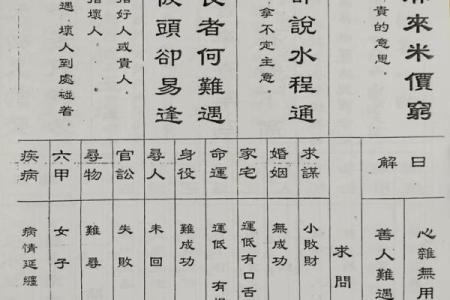 帶來米價窮
貴的意思。
許說水程通
拿不定主意。
長者何難遇
指好人或貴人。
陂頭卻易逢
指壞人。
遇。壞人到處碰着。
日
解
心雜無用
善人難遇
求問
求謀
小敗財
婚姻
無成功
家宅
運低有口舌
命運
運低 有
身役
難成功
尋人
未回
官訟
失敗
尋物
難尋
六甲
女子
疾病
病情延纏